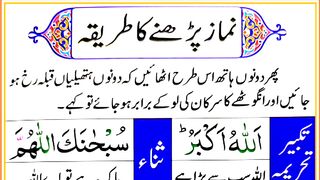 نماز پڑھنے کا طریقہ
پھر دونوں ہاتھ اس طرح اٹھائیں کہ دونوں ہتھیلیاں قبلہ رخ ہو
جائیں اور انگوٹھے کا سر کان کی لو کے برابر ہو جائے تو کہے۔
تکبیر تحریمہ
اَللّٰهُ اَكْبَرُ
ثناء
سُبْحٰنَكَ اللّٰهُمَّ
اللہ سب سے بڑا ہے
پاک ہے تو اے اللہ